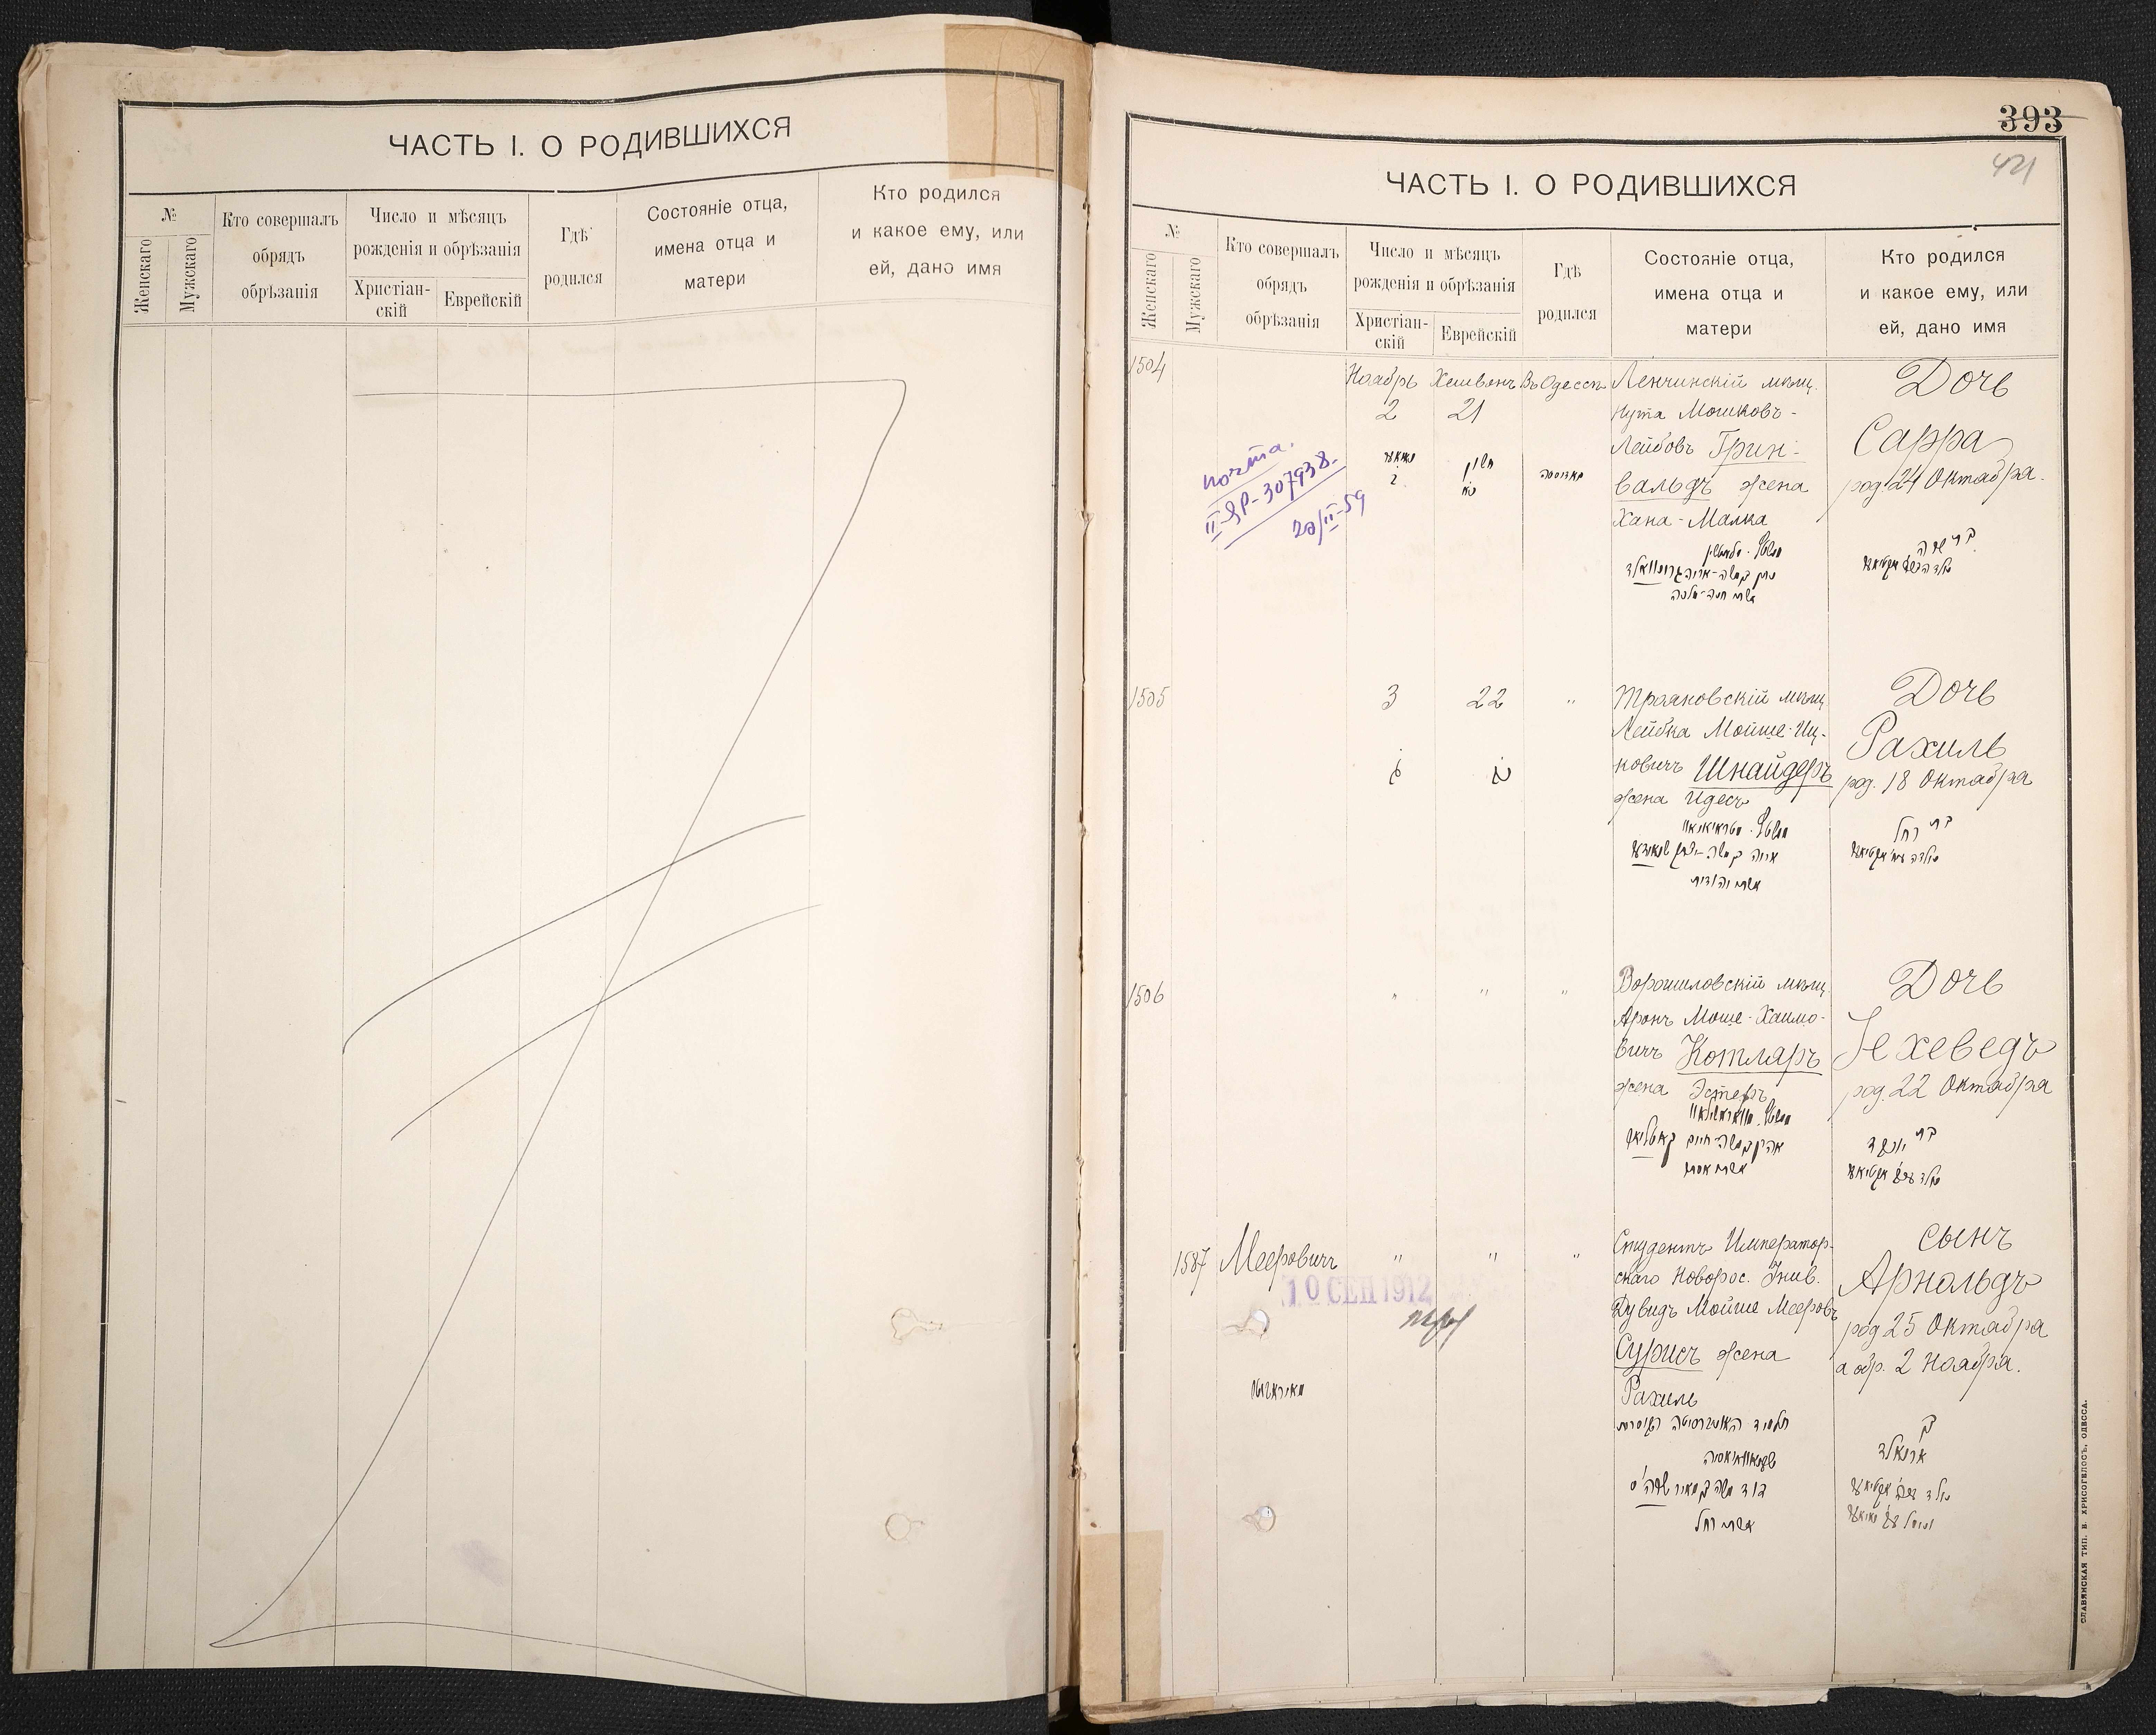 ЧАСТЬ I. О РОДИВШИХСЯ
№
Женскаго
Мужскаго
Кто совершалъ
обрядъ
обрѣзанія
Число и мѣсяцъ
рожденія и обрѣзанія
Христіан-
скій
Еврейскій
Гдѣ
родился
Состояніе отца,
имена отца и
матери
Кто родился
и какое ему, или
ей, дано имя
393
421
ЧАСТЬ I. О РОДИВШИХСЯ
№
Женскаго
Мужскаго
Кто совершалъ
обрядъ
обрѣзанія
Число и мѣсяцъ
рожденія и обрѣзанія
Христіан-
скій
Еврейскій
Гдѣ
родился
Состояніе отца,
имена отца и
матери
Кто родился
и какое ему, или
ей, дано имя
1504
Ноябрь
2
Хешвонъ
21
חשון
כא
Въ Одессѣ
Ленчинскій мѣщ.
Нута Мошковъ-
Лейбовъ Грин-
вальдъ жена
Хана-Малка
אשתו חנה-מלכה
Дочь
Сарра
род. 24 Октября.
בת שרה
почта.
20/II-59
1505
3
22
"
Трояновскій мѣщ
Лейбка Мойше-Иц-
ковичъ Шнайдеръ
жена Идесъ
אשתו יהודית
Дочь
Рахиль
род. 18 Октября
בת רחל
1506
"
"
"
Ворошиловскій мѣщ
Аронъ Моше-Хаимо-
вичъ Котляръ
жена Эстеръ
אהרן במשה-חיים קאטליאר
אשתו אסתר
Дочь
Іехеведъ
род. 22 Октября
בת יוכבד
1587
Мееровичъ
"
"
"
10 СЕН 1912
מאיראוויטש
Студентъ Император-
скаго Новорос. Унив.
Дувидъ Мойше Мееровъ
Сурисъ жена
Рахиль
דוד משה במאיר שרה'ס
אשתו רחל
сынъ
Арнольдъ
род 25 Октября
а обр. 2 Ноября.
בן
ארנאלד
СЛАВЯНСКАЯ ТИП. Н. ХРИСОГЕЛОСЪ, ОДЕССА.